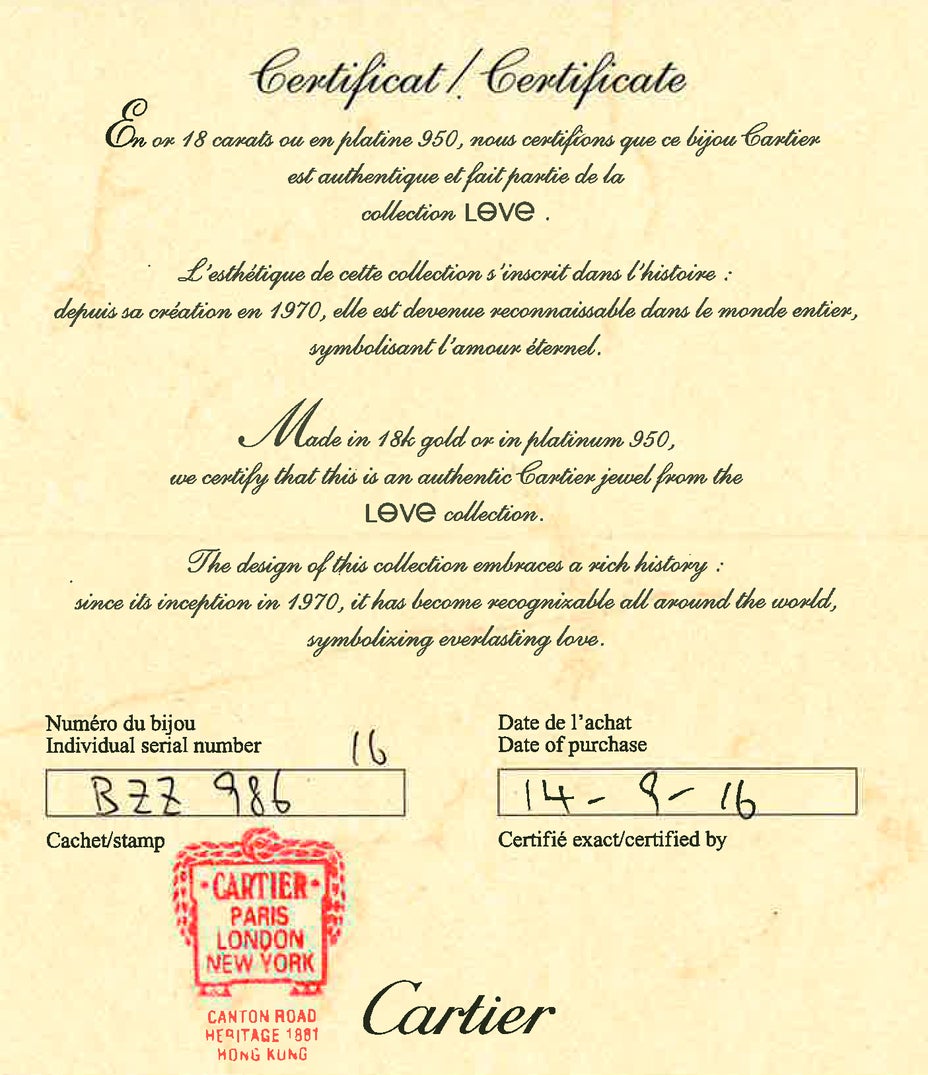 Certificat / Certificate
En or 18 carats ou en platine 950, nous certifions que ce bijou Cartier
est authentique et fait partie de la
collection LOVE .
L'esthétique de cette collection s'inscrit dans l'histoire :
depuis sa création en 1970, elle est devenue reconnaissable dans le monde entier,
symbolisant l'amour éternel.
Made in 18k gold or in platinum 950,
we certify that this is an authentic Cartier jewel from the
LOVE collection.
The design of this collection embraces a rich history :
since its inception in 1970, it has become recognizable all around the world,
symbolizing everlasting love.
Numéro du bijou
Individual serial number
16
BZZ 986
Date de l'achat
Date of purchase
14 - 9 - 16
Cachet/stamp
Certifié exact/certified by
CARTIER
PARIS
LONDON
NEW YORK
CANTON ROAD
HERITAGE 1881
HONG KUNG
Cartier